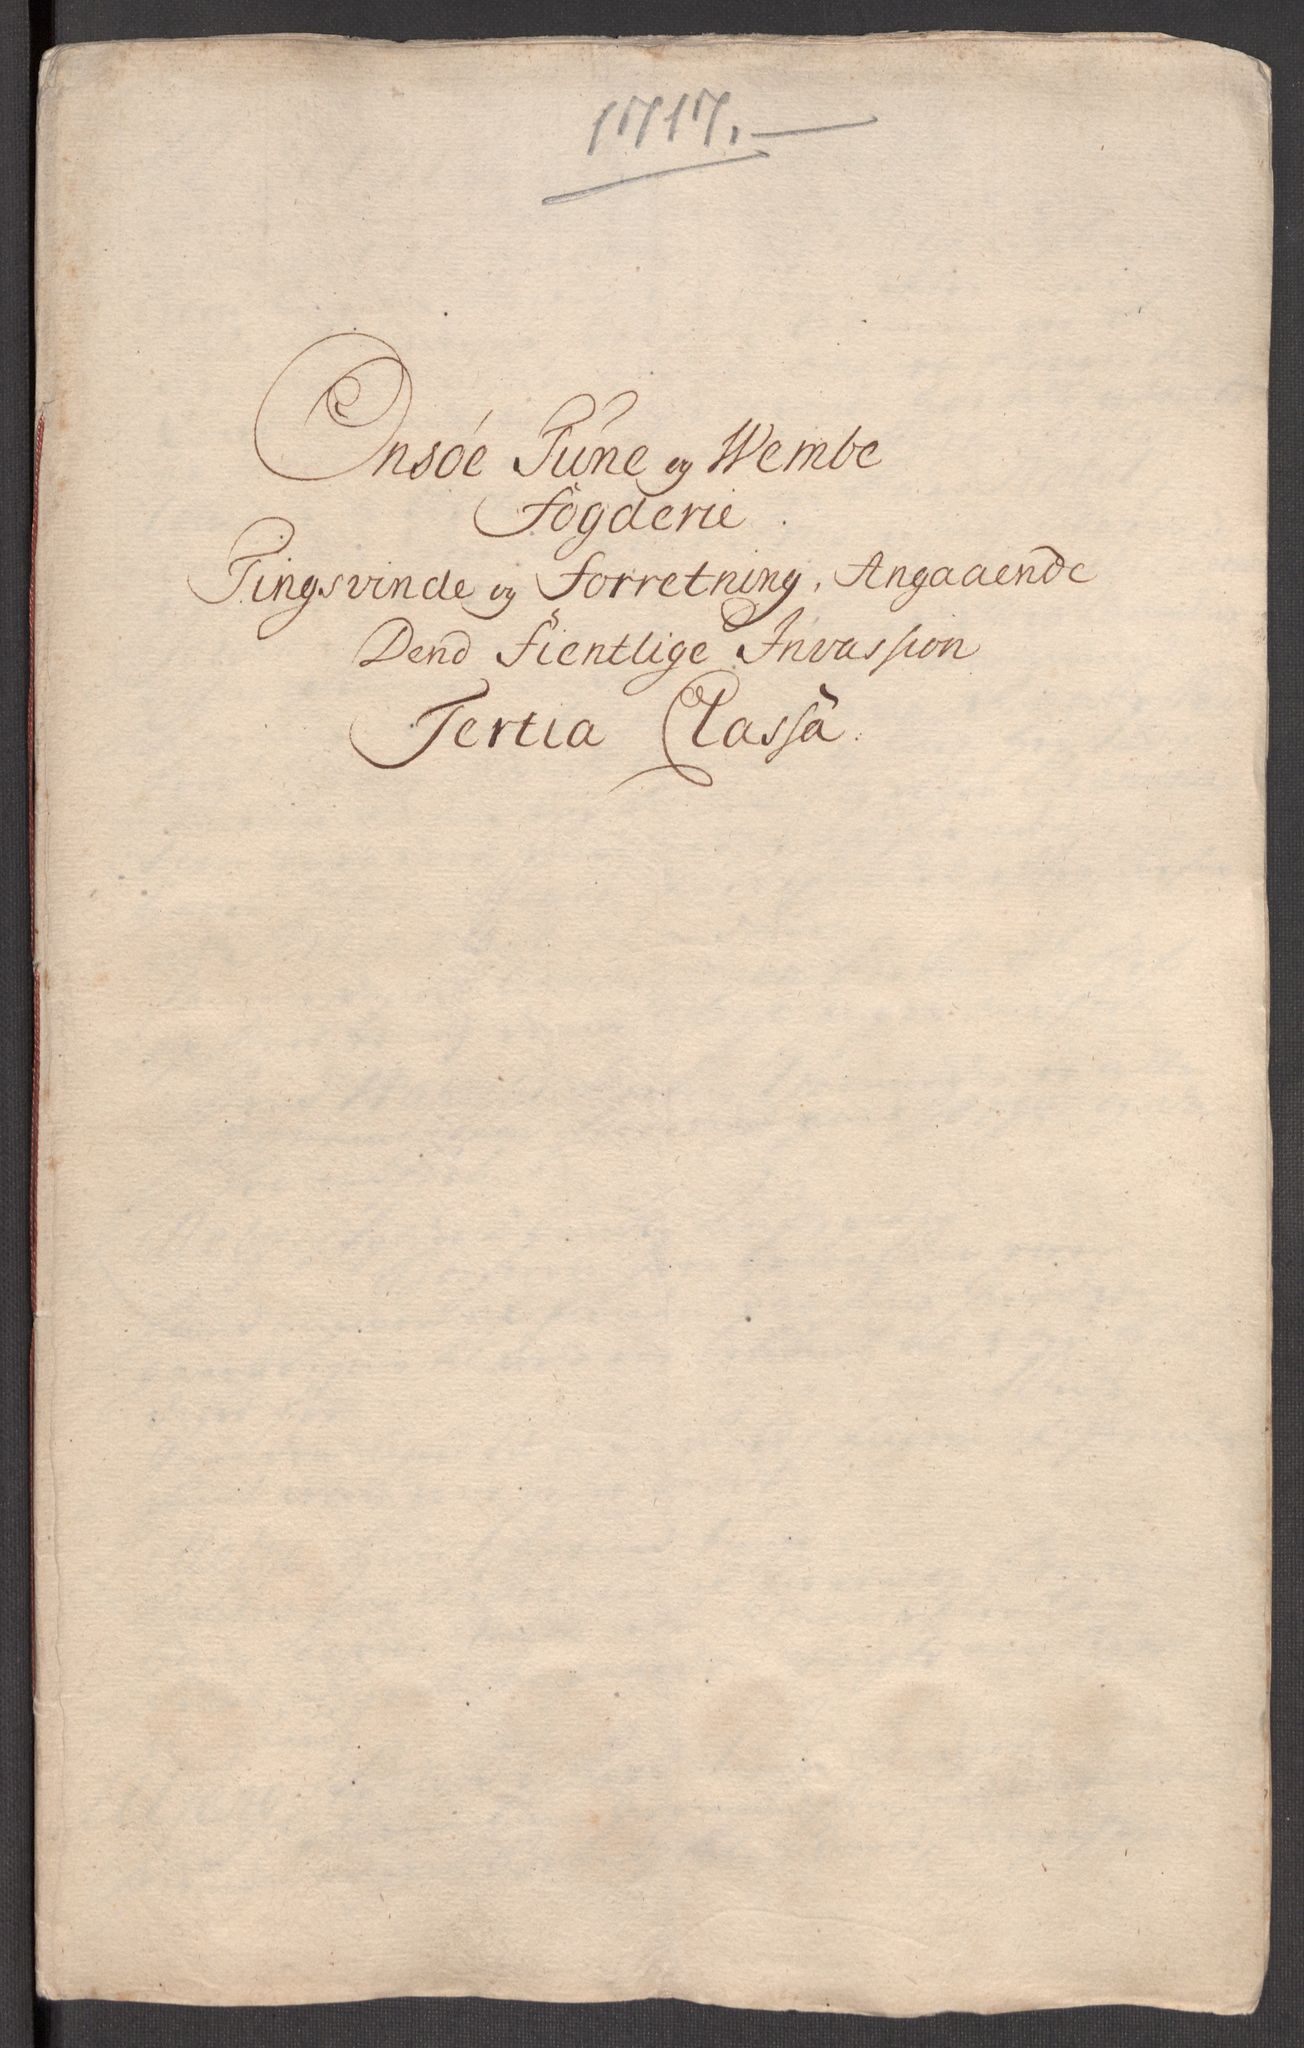 1717.
Onsóe Tune og Wembe
fogderie
Tingsvinde og forretning, Angaaende
Dend fientlige Invassion
Tertia Classâ.